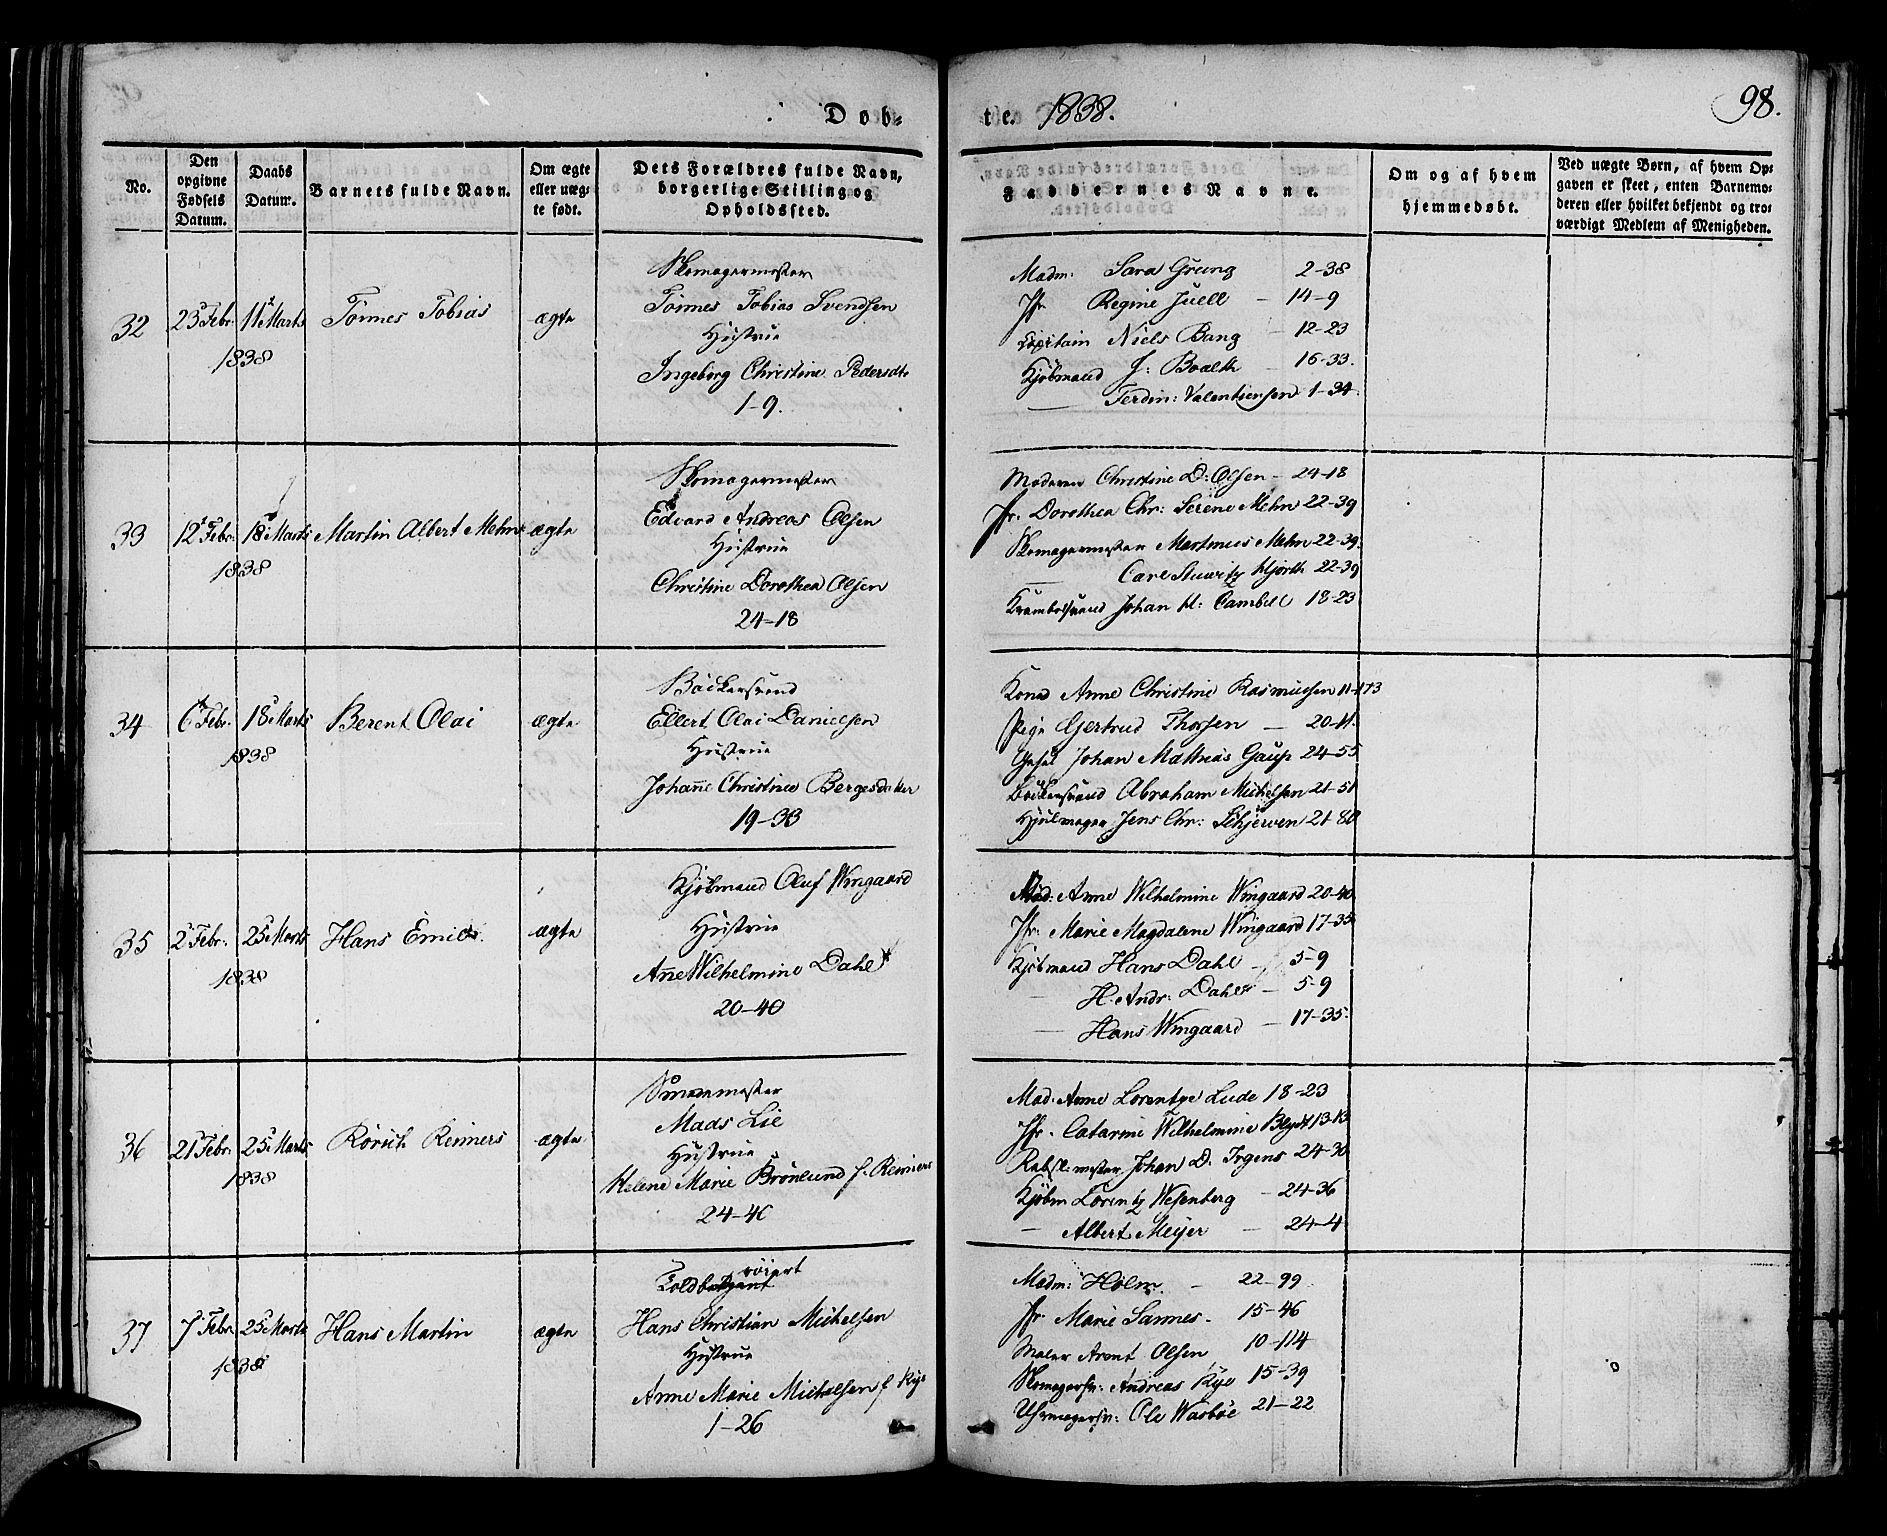 Døb-
te. 1838.
98.
No.
Den opgivne Fødsels Datum.
Daabs Datum.
Barnets fulde Navn.
Om ægte eller uæg-
te født.
Dets Forældres fulde Navn,
borgerlige Stilling og
Opholdssted.
Faddernes Navne.
Om og af hvem
hjemmedøbt.
Ved uægte Børn, af hvem Op-
gaven er skeet, enten Barnemo-
deren eller hvilket bekjendt og tro-
værdigt Medlem af Menigheden.
32
23 Febr.
11 Marts
1838
Tönnes Tobias
ægte
Skomagermester
Tönnes Tobias Svendsen
Hustrue
Ingeborg Christine Pedersdtr
1-9.
Madm: Sara Grung 2-38
Jfr Regine Juell - 14-9
Capitain Niels Bang 12-23
Kjöbmand J: Boalth 16-33.
— Ferdin: Valentiensen 1-34.
33
12 Febr.
18 Marts
1838
Martin Albert Mehn
ægte
Skomagermester
Edvard Andreas Olsen
Hustrue
Christine Dorothea Olsen
24-18
Moderen Christine D: Olsen - 24-18
Jfr. Dorothea Chr: Serene Mehn 22-39
Skomagermester Martinus Mehn 22-39.
— Carl Stuwitz Hjorth 22-39
Krambodsvend Johan H: Cambell 18-23
34
6 Febr.
18 Marts
1838
Berent Olai
ægte
Bäckersvend
Ellert Olai Danielsen
Hustrue
Johanne Christine Bergesdatter
19-33
Kone Anne Christine Rasmussen 11-173
Pige Gjertrud Thorsen — 20-11.
Gesel Johan Mathias Gaup 24-55
Bäckersvend Abraham Michelsen 21-51
Hjulmager Jens Chr: Schjerven 21-80
35
2 Febr.
25 Marts
1838
Hans Emil
ægte
Kjöbmand Oluf Wingaard
Hustrue
Anne Wilhelmine Dahl
20-40
Mad: Anne Wilhelmine Wingaard 20-40
Jfr. Marie Magdalene Wingaard 17-35
Kjöbmand Hans Dahl — 5-9
— H. Andr: Dahl — 5-9
— Hans Wingaard — 17-35.
36
21 Febr.
25 Marts
1838
Rörich Reimers
ægte
Smedemester
Mads Lie
Hustrue
Helene Marie Brönlund f. Reimers
24-40
Mad. Anne Lorentze Lude 18-23
Jfr. Catarine Wilhelmine Blydt 13-13
Rebsl:mester Johan D. Irgens 24-30
Kjöbm Lorentz Wesenberg - 24-36
— Albert Meyer — 24-4
37
7 Febr.
25 Marts
1838
Hans Martin
ægte
röiert
Hans Christian Michelsen
Hustrue
Anne Marie Michelsen f Rye
1-26
Madm: Holm. - 22-99
Jfr Marie Sannes. 15-46
Maler Arent Olsen 10-114
Skomagersv: Andreas Rye 15-39
Uhrmagersv: Ole Warböe 21-22